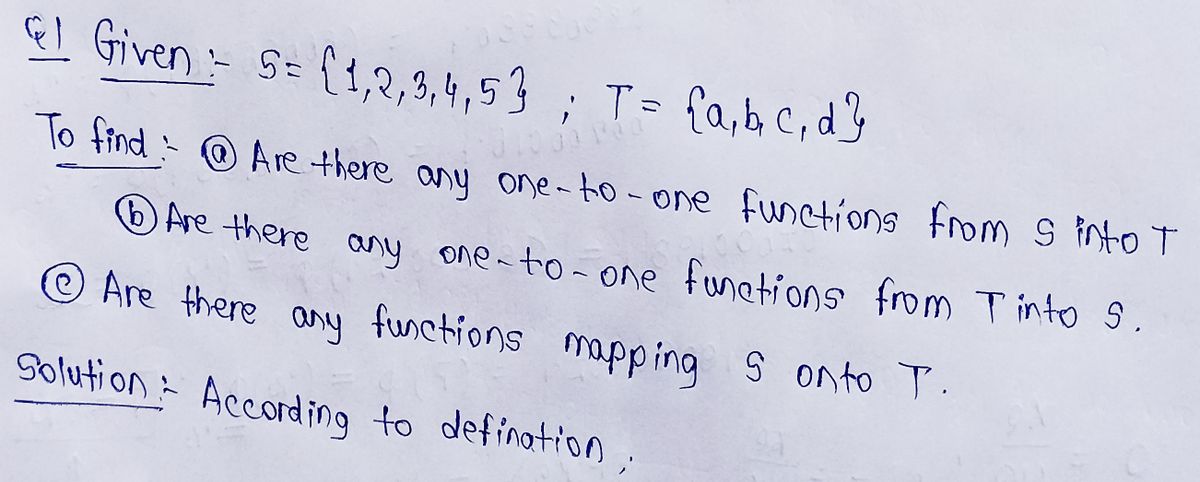 Q1 Given :- S= {1,2,3,4,5} ; T= {a,b,c,d}
To find :- (a) Are there any one-to-one functions from S into T
(b) Are there any one-to-one functions from T into S.
(c) Are there any functions mapping S onto T.
Solution :- According to defination,